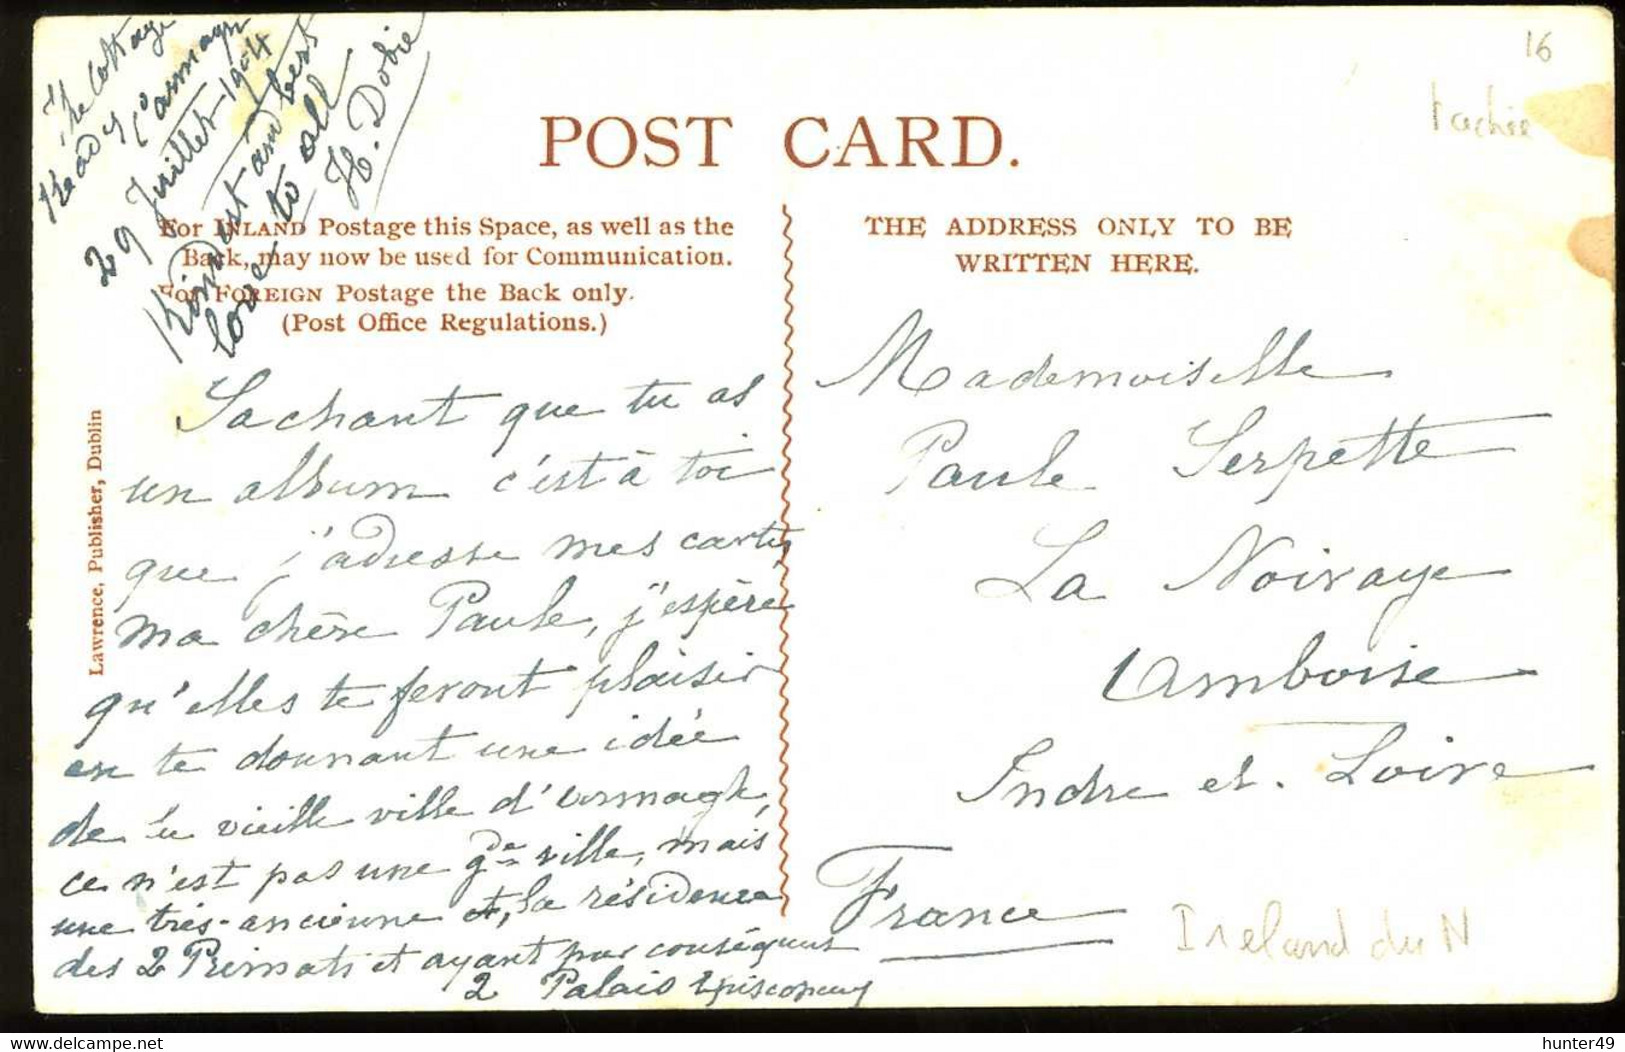 The Cottage
Keady Co Armagh
29 Juillet - 1904
Kindest and best
love to all
H. Dobie
16
tachée
POST CARD.
For INLAND Postage this Space, as well as the
Back, may now be used for Communication.
For FOREIGN Postage the Back only.
(Post Office Regulations.)
THE ADDRESS ONLY TO BE
WRITTEN HERE.
Lawrence, Publisher, Dublin
Sachant que tu as
un album c'est à toi
que j'adresse mes cartes,
ma chère Paule, j'espère
qu'elles te feront plaisir
en te donnant une idée
de la vieille ville d'Armagh,
ce n'est pas une gde ville, mais
une très-ancienne et, la résidence
des 2 Primats et ayant par conséquent
2 Palais Episcopaux
Mademoiselle
Paule Serpette
La Noiraye
Amboise
Indre et. Loire
France
Ireland du N
hunter49